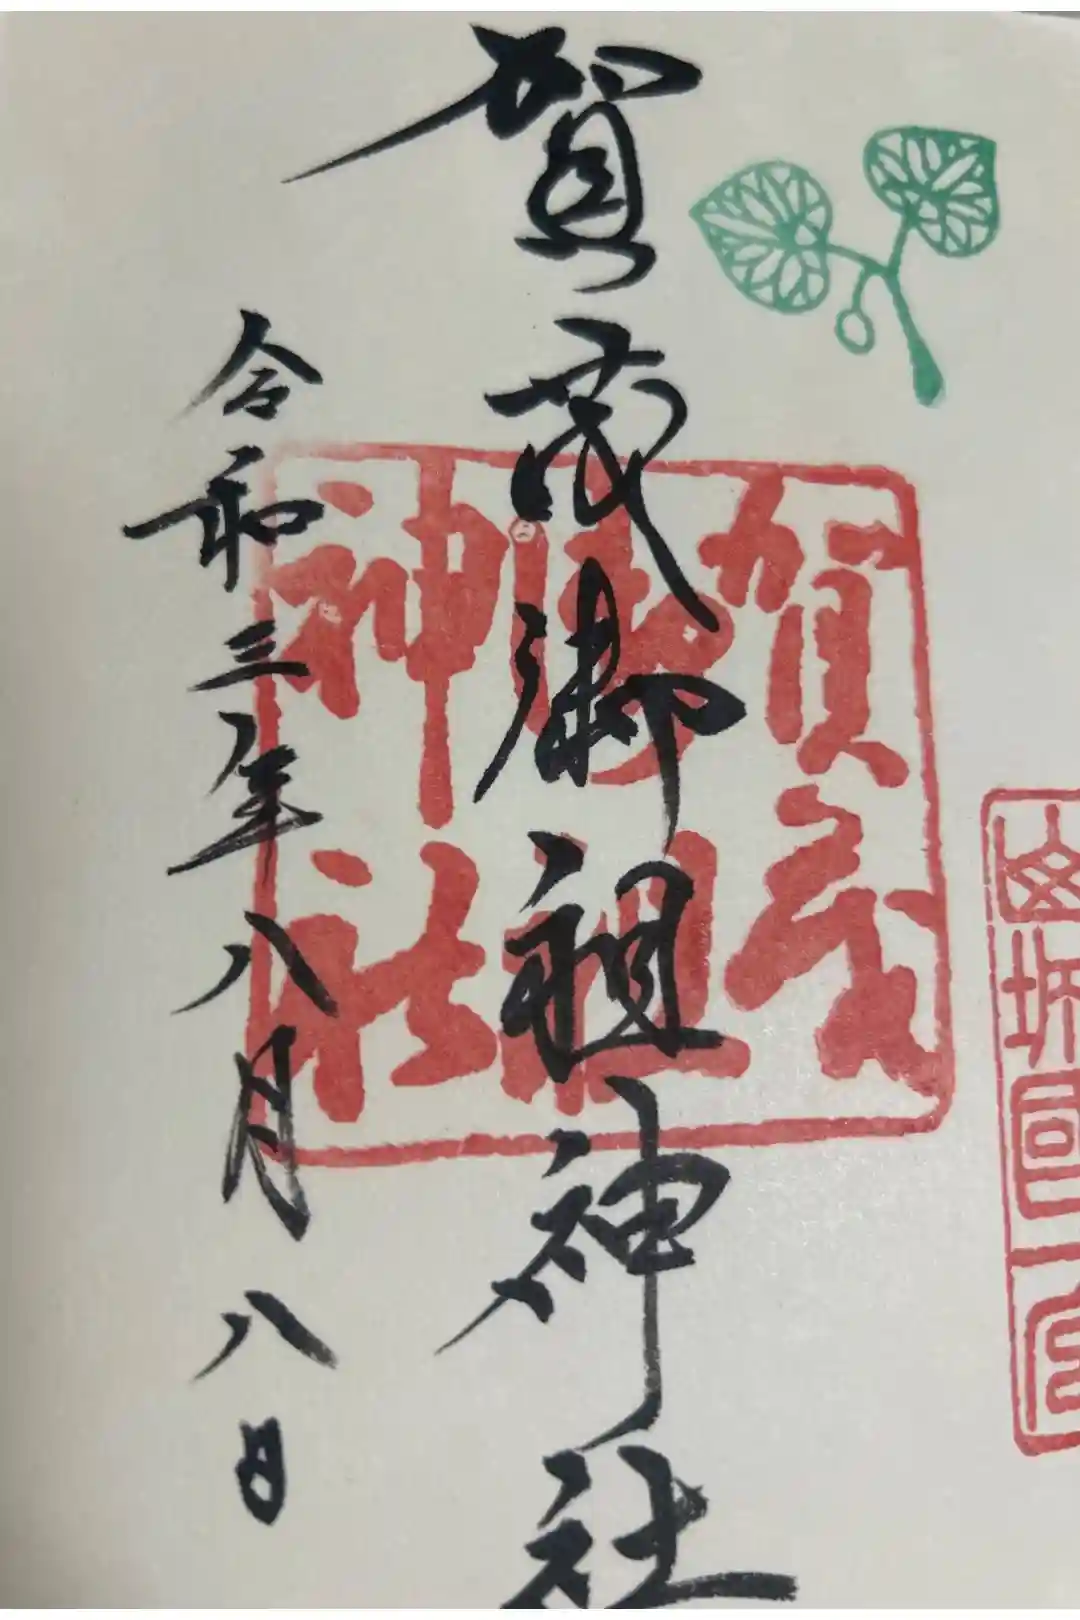 山城國一宮
賀茂御祖神社
賀茂
御祖
神社
令和三年八月八日